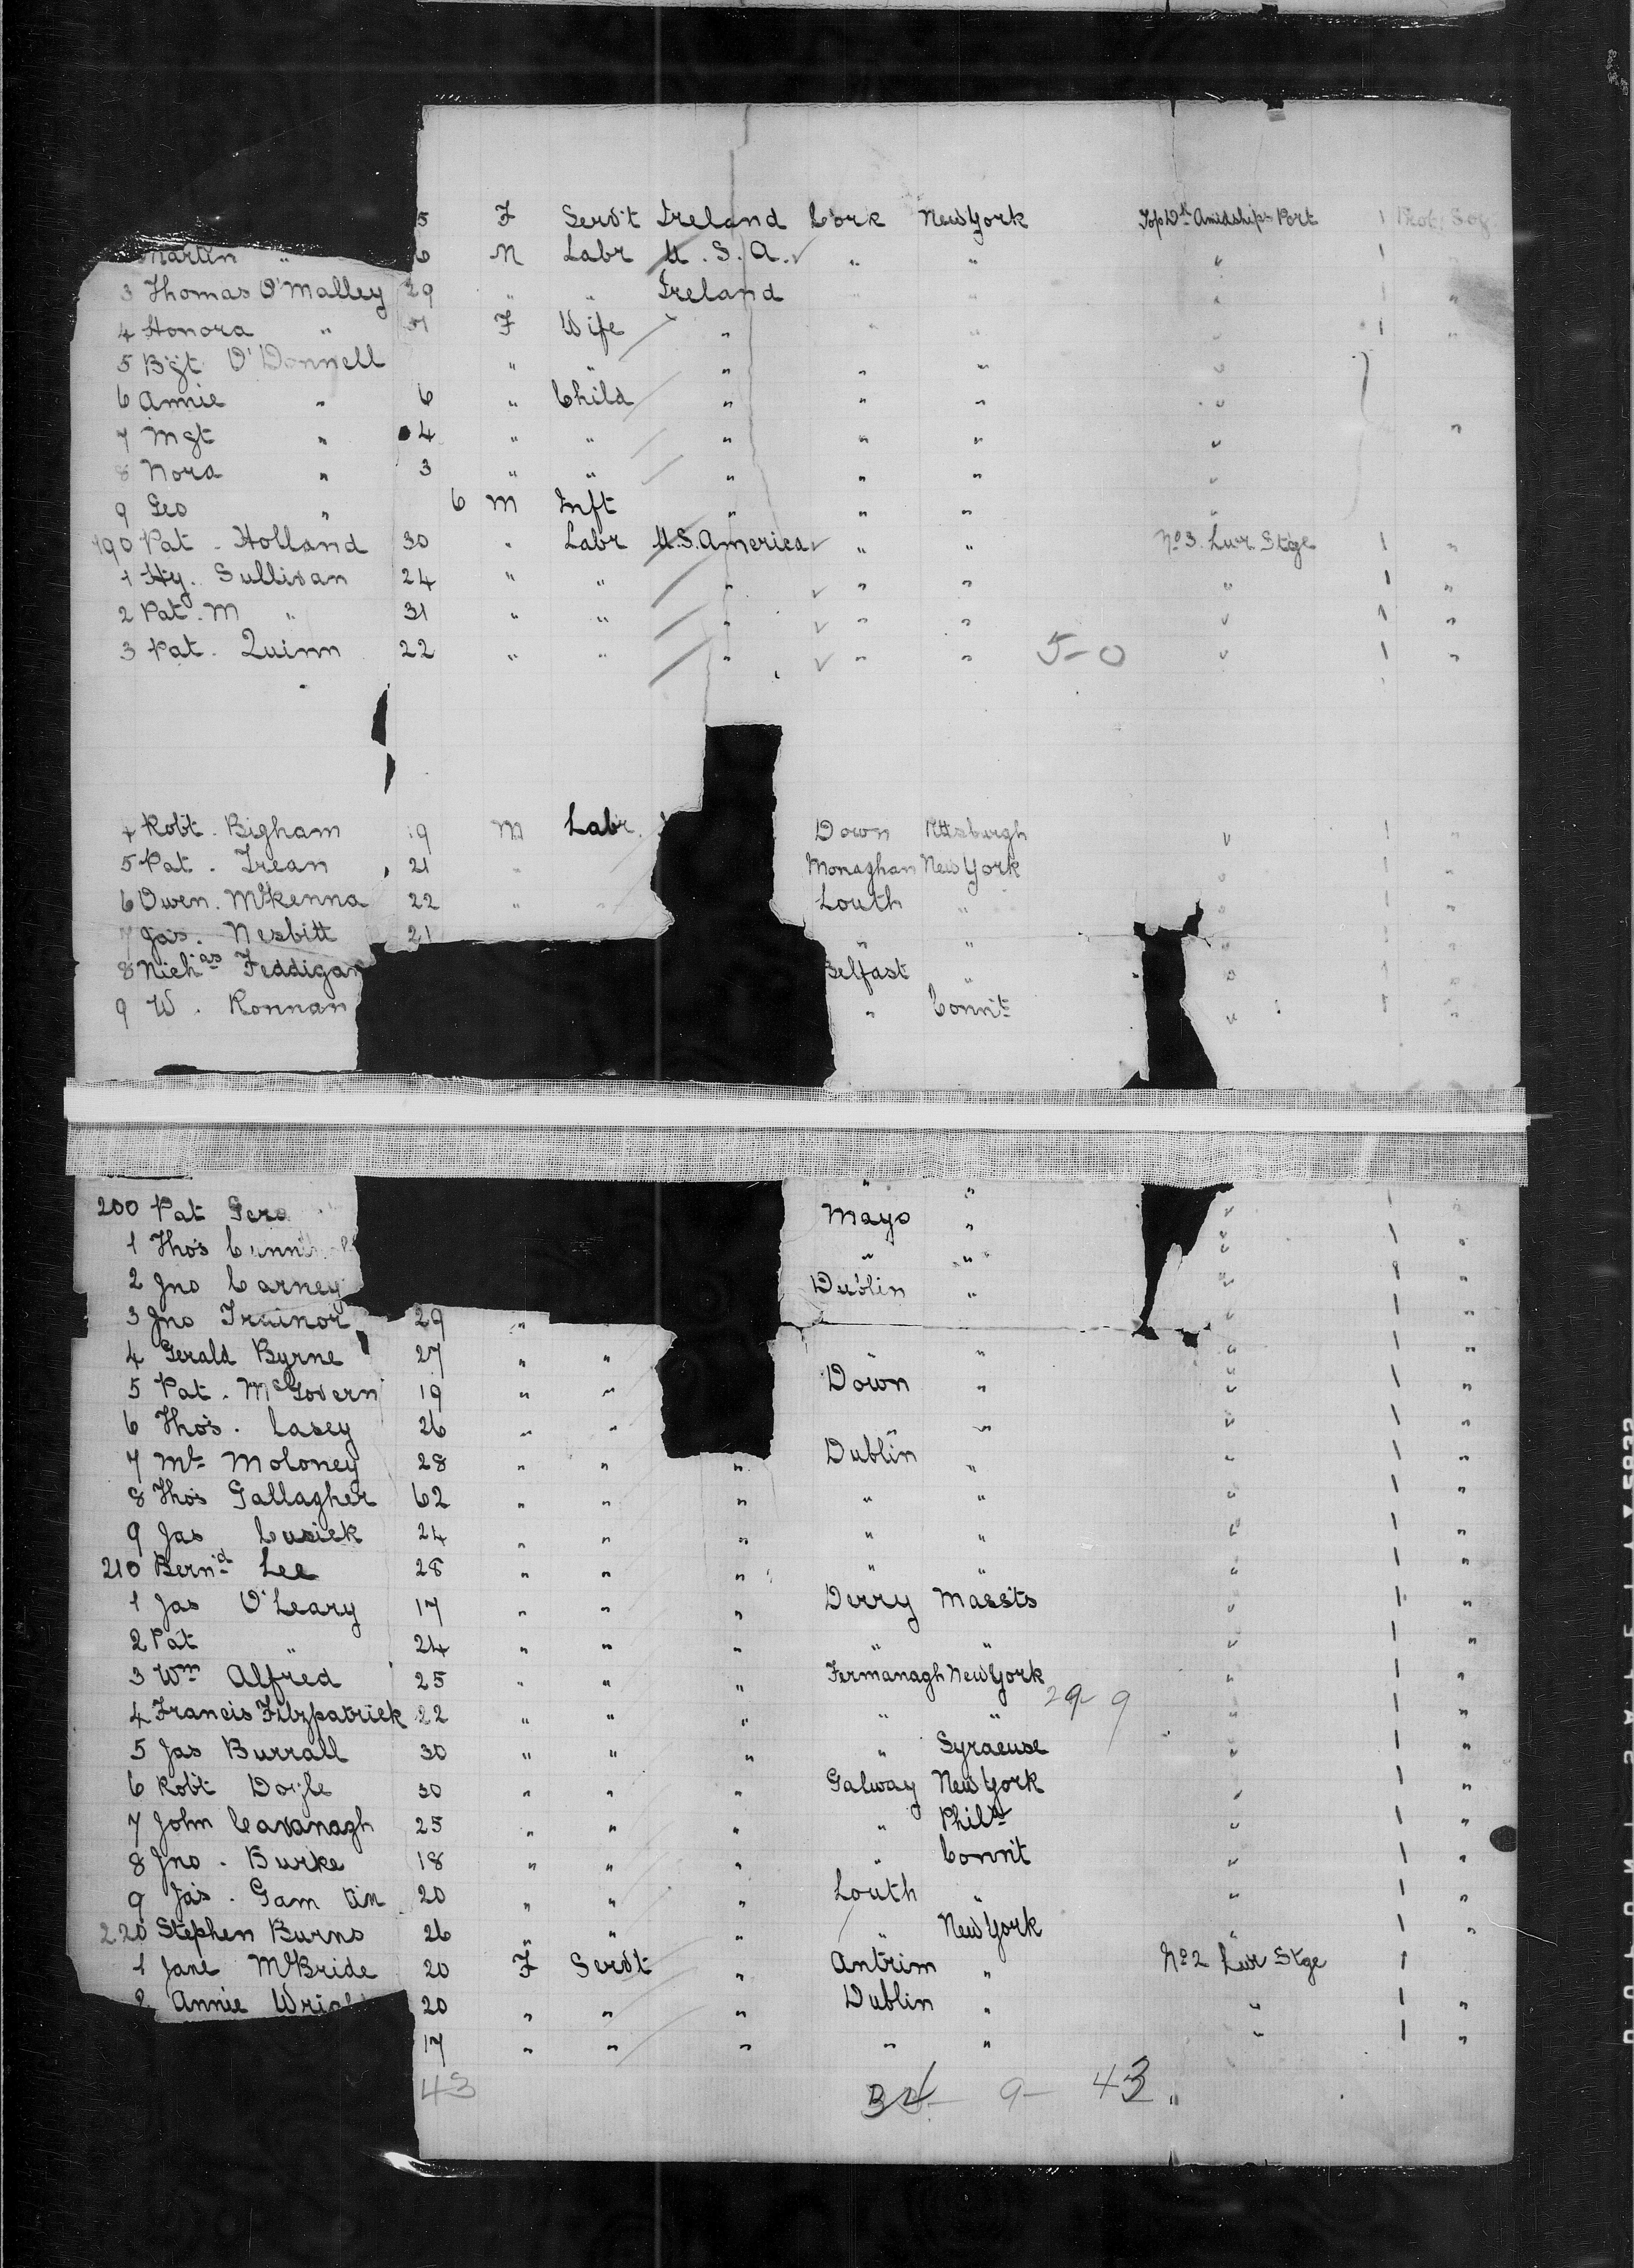 5 F Serv't Ireland Cork New York Top Dk Amidships Port 1 Prot. Soj
Martin " 6 M Labr U.S.A. ✓ " " " 1
3 Thomas O'Malley 29 " " Ireland " " " 1 "
4 Honora " F Wife " " " " 1 "
5 Bgt O'Donnell " " " " " "
6 Annie " 6 " Child " " " "
7 Mgt " 4 " " " " " " "
8 Nora " 3 " " " " " "
9 Geo " 6 M Inft " " " "
190 Pat. Holland 30 " Labr U.S. America ✓ " " No 3. Lwr. Stge 1 "
1 Hy. Sullivan 24 " " " ✓ " " " 1 "
2 Pat. M " 31 " " " ✓ " " " 1 "
3 Pat. Quinn 22 " " " ✓ " " 5-0 " 1 "
4 Robt. Bigham 19 M Labr. Down Pittsburgh " 1 "
5 Pat. Trean 21 " " Monaghan New York " 1 "
6 Owen. McKenna 22 " " Louth " " 1 "
7 Jas. Nesbitt 21 " " " 1 "
8 Nichas Feddigan Belfast " " 1 "
9 W. Ronnan " Connt " 1 "
" "
200 Pat Mayo " " 1 "
1 Thos " " " 1 "
2 Jno Carney Dublin " " 1 "
3 Jno Trainor 29 " " 1 "
4 Gerald Byrne 27 " " " " " 1 "
5 Pat. McGovern 19 " " Down " " 1 "
6 Thos. Casey 26 " " " " " 1 "
7 Mt Moloney 28 " " " Dublin " " 1 "
8 Thos Gallagher 62 " " " " " " 1 "
9 Jas Cusick 24 " " " " " " 1 "
210 Bernd Lee 28 " " " " " " 1 "
1 Jas O'Leary 17 " " " Derry Massts " 1 "
2 Pat " 24 " " " " " " 1 "
3 Wm Alfred 25 " " " Fermanagh New York " 1 "
4 Francis Fitzpatrick 22 " " " " " 29-9 " 1 "
5 Jas Burrall 30 " " " " Syracuse " 1 "
6 Robt Doyle 30 " " " Galway New York " 1 "
7 John Cavanagh 25 " " " " Phila " 1 "
8 Jno. Burke 18 " " " " Connt " 1 "
9 Jas. 20 " " " Louth " " 1 "
220 Stephen Burns 26 " " " " New York " 1 "
1 Jane McBride 20 F Servt " Antrim " No 2 Lwr Stge 1
2 Annie 20 " " " Dublin " " 1 "
17 " " " " " " 1 "
43 9- 43